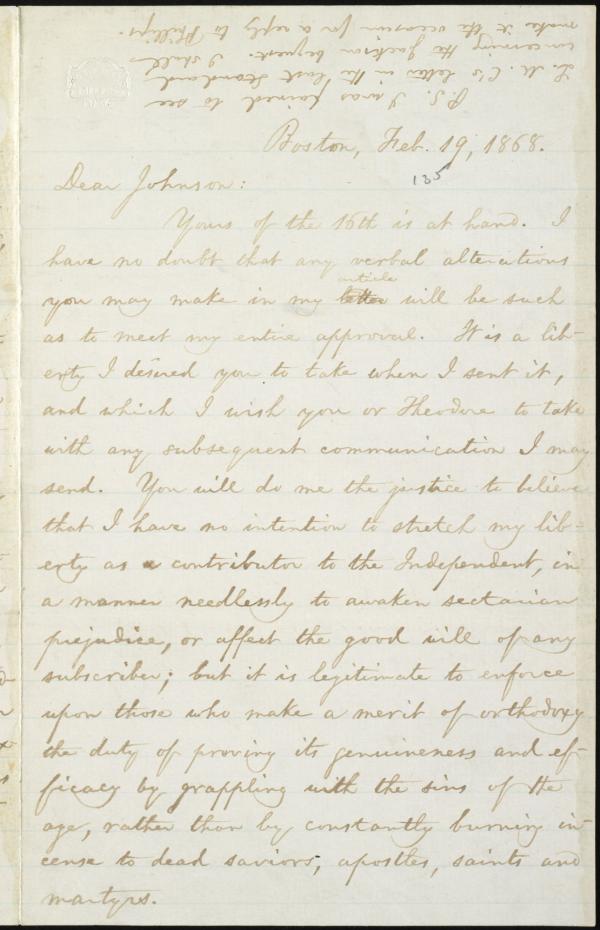 Boston, Feb. 19, 1868.
135
Dear Johnson:
Yours of the 16th is at hand. I
have no doubt that any verbal alterations
article
you may make in my letter will be such
as to meet my entire approval. It is a lib-
erty I desired you to take when I sent it,
and which I wish you or Theodore to take
with any subsequent communication I may
send. You will do me the justice to believe
that I have no intention to stretch my lib-
erty as a contributor to the Independent, in
a manner needlessly to awaken sectarian
prejudice, or affect the good will of any
subscriber; but it is legitimate to enforce
upon those who make a merit of orthodoxy
the duty of proving its genuineness and ef-
ficacy by grappling with the sins of the
age, rather than by constantly burning in-
cense to dead saviors, apostles, saints and
martyrs.
P.S. I was pained to see
L. M. C's letter in the last Standard
concerning the Jackson bequest. I shall
make it the occasion for a reply to Phillips.